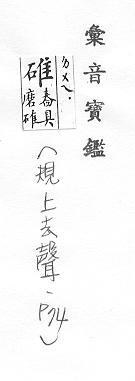 彙音寶鑑
ㄉㄨㄟ
碓舂具
磨碓
(規上去聲, P74)